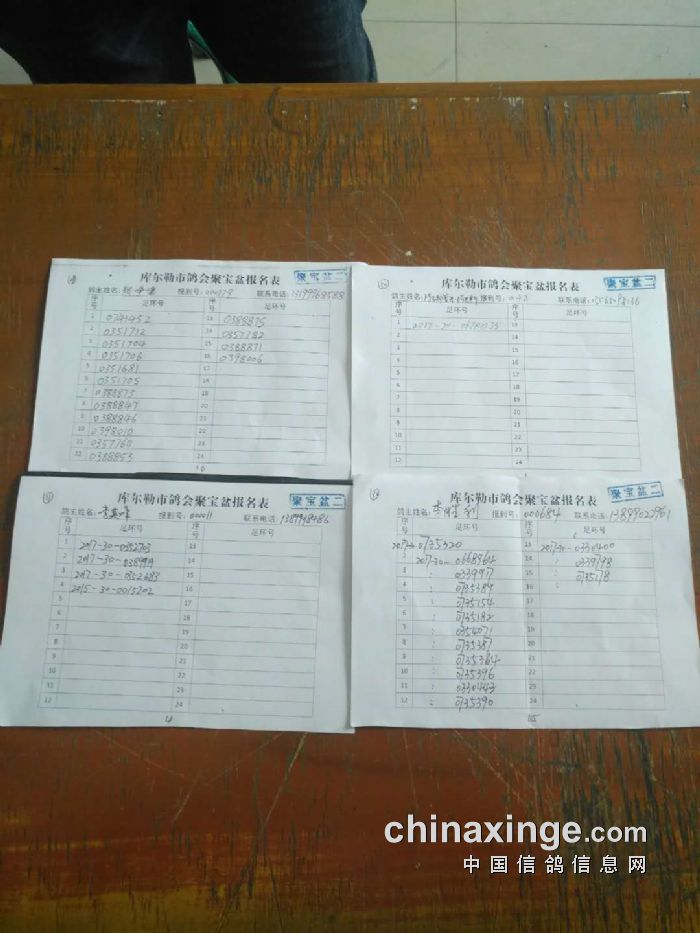 库尔勒市鸽会聚宝盆报名表
聚宝盆二
鸽主姓名: 报到号: 000779 联系电话: 13199968588
序号 足环号 序号 足环号
1 0341452 13 0388875
2 0351712 14 0357182
3 0351704 15 0388871
4 0351706 16 0398006
5 0351681 17
6 0351705 18
7 0388873 19
8 0388847 20
9 0388846 21
10 0398010 22
11 0357160 23
12 0388853 24
库尔勒市鸽会聚宝盆报名表
聚宝盆二
鸽主姓名: 报到号: 联系电话:
序号 足环号 序号 足环号
库尔勒市鸽会聚宝盆报名表
聚宝盆二
鸽主姓名: 报到号: 000011 联系电话:
序号 足环号 序号 足环号
1 2017-30-0352703 13
2 2017-30- 14
3 2017-30- 15
4 2015-30-0015702 16
库尔勒市鸽会聚宝盆报名表
聚宝盆二
鸽主姓名: 李胜利 报到号: 000684 联系电话: 13899022961
序号 足环号 序号 足环号
1 2017-30-0735320 13 2017-30-0330400
2 2017-30-0668964 14 0339798
3 : 0339917 15 0735178
4 : 0735389 16
5 : 0735154 17
6 : 0735182 18
7 : 0354071 19
8 : 0735387 20
9 : 0735364 21
10 : 0735396 22
11 : 0330443 23
12 : 0735390 24
chinaxinge.com
中国信鸽信息网